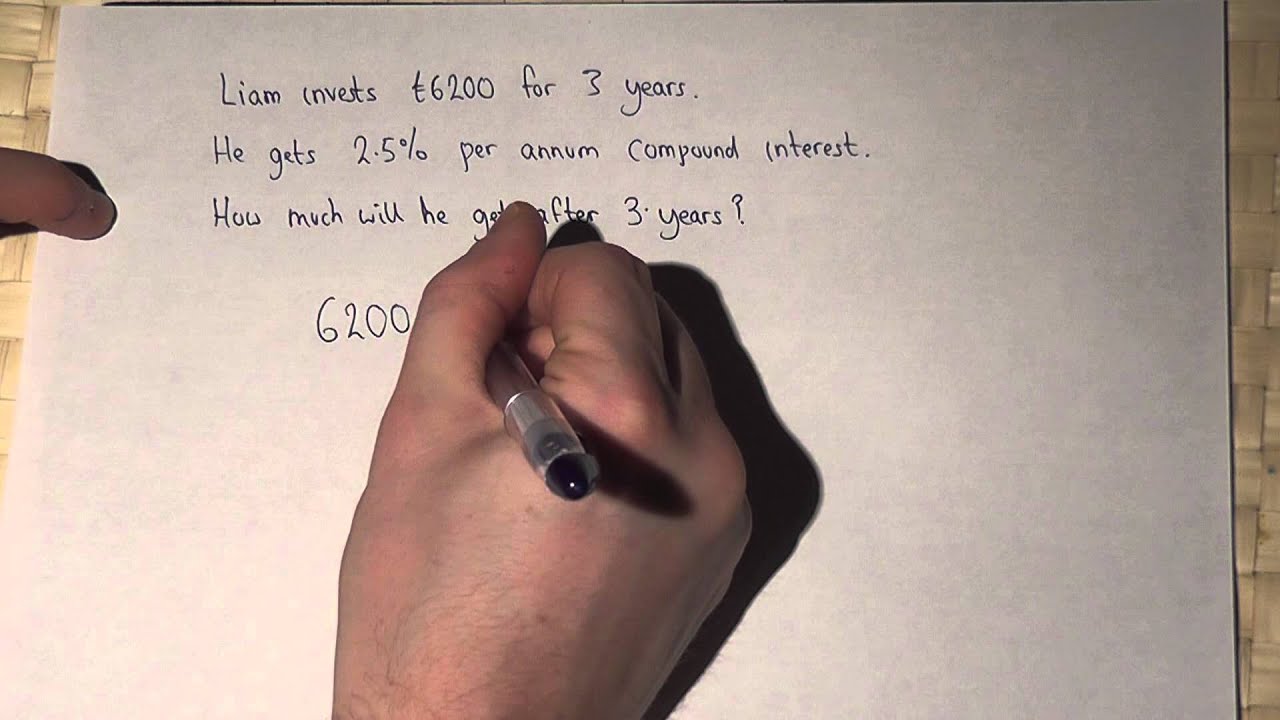 Liam invests £6200 for 3 years.
He gets 2.5% per annum compound interest.
How much will he get after 3 years?
6200